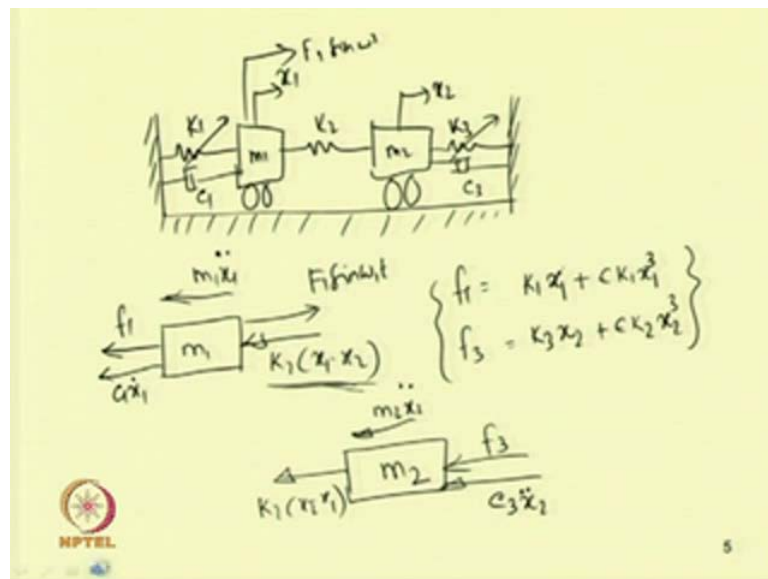 F₁ sin ωt
x₁
x₂
K₁
K₂
K₃
m₁
m₂
C₁
C₃
m₁ẍ₁
F₁ sin ω₁t
f₁
m₁
C₁ẋ₁
K₂(x₁-x₂)
f₁ = K₁x₁ + ϵK₁x₁³
f₃ = K₃x₂ + ϵK₂x₂³
m₂ẍ₂
m₂
f₃
K₂(x₂x₁)
C₃ẍ₂
NPTEL
5